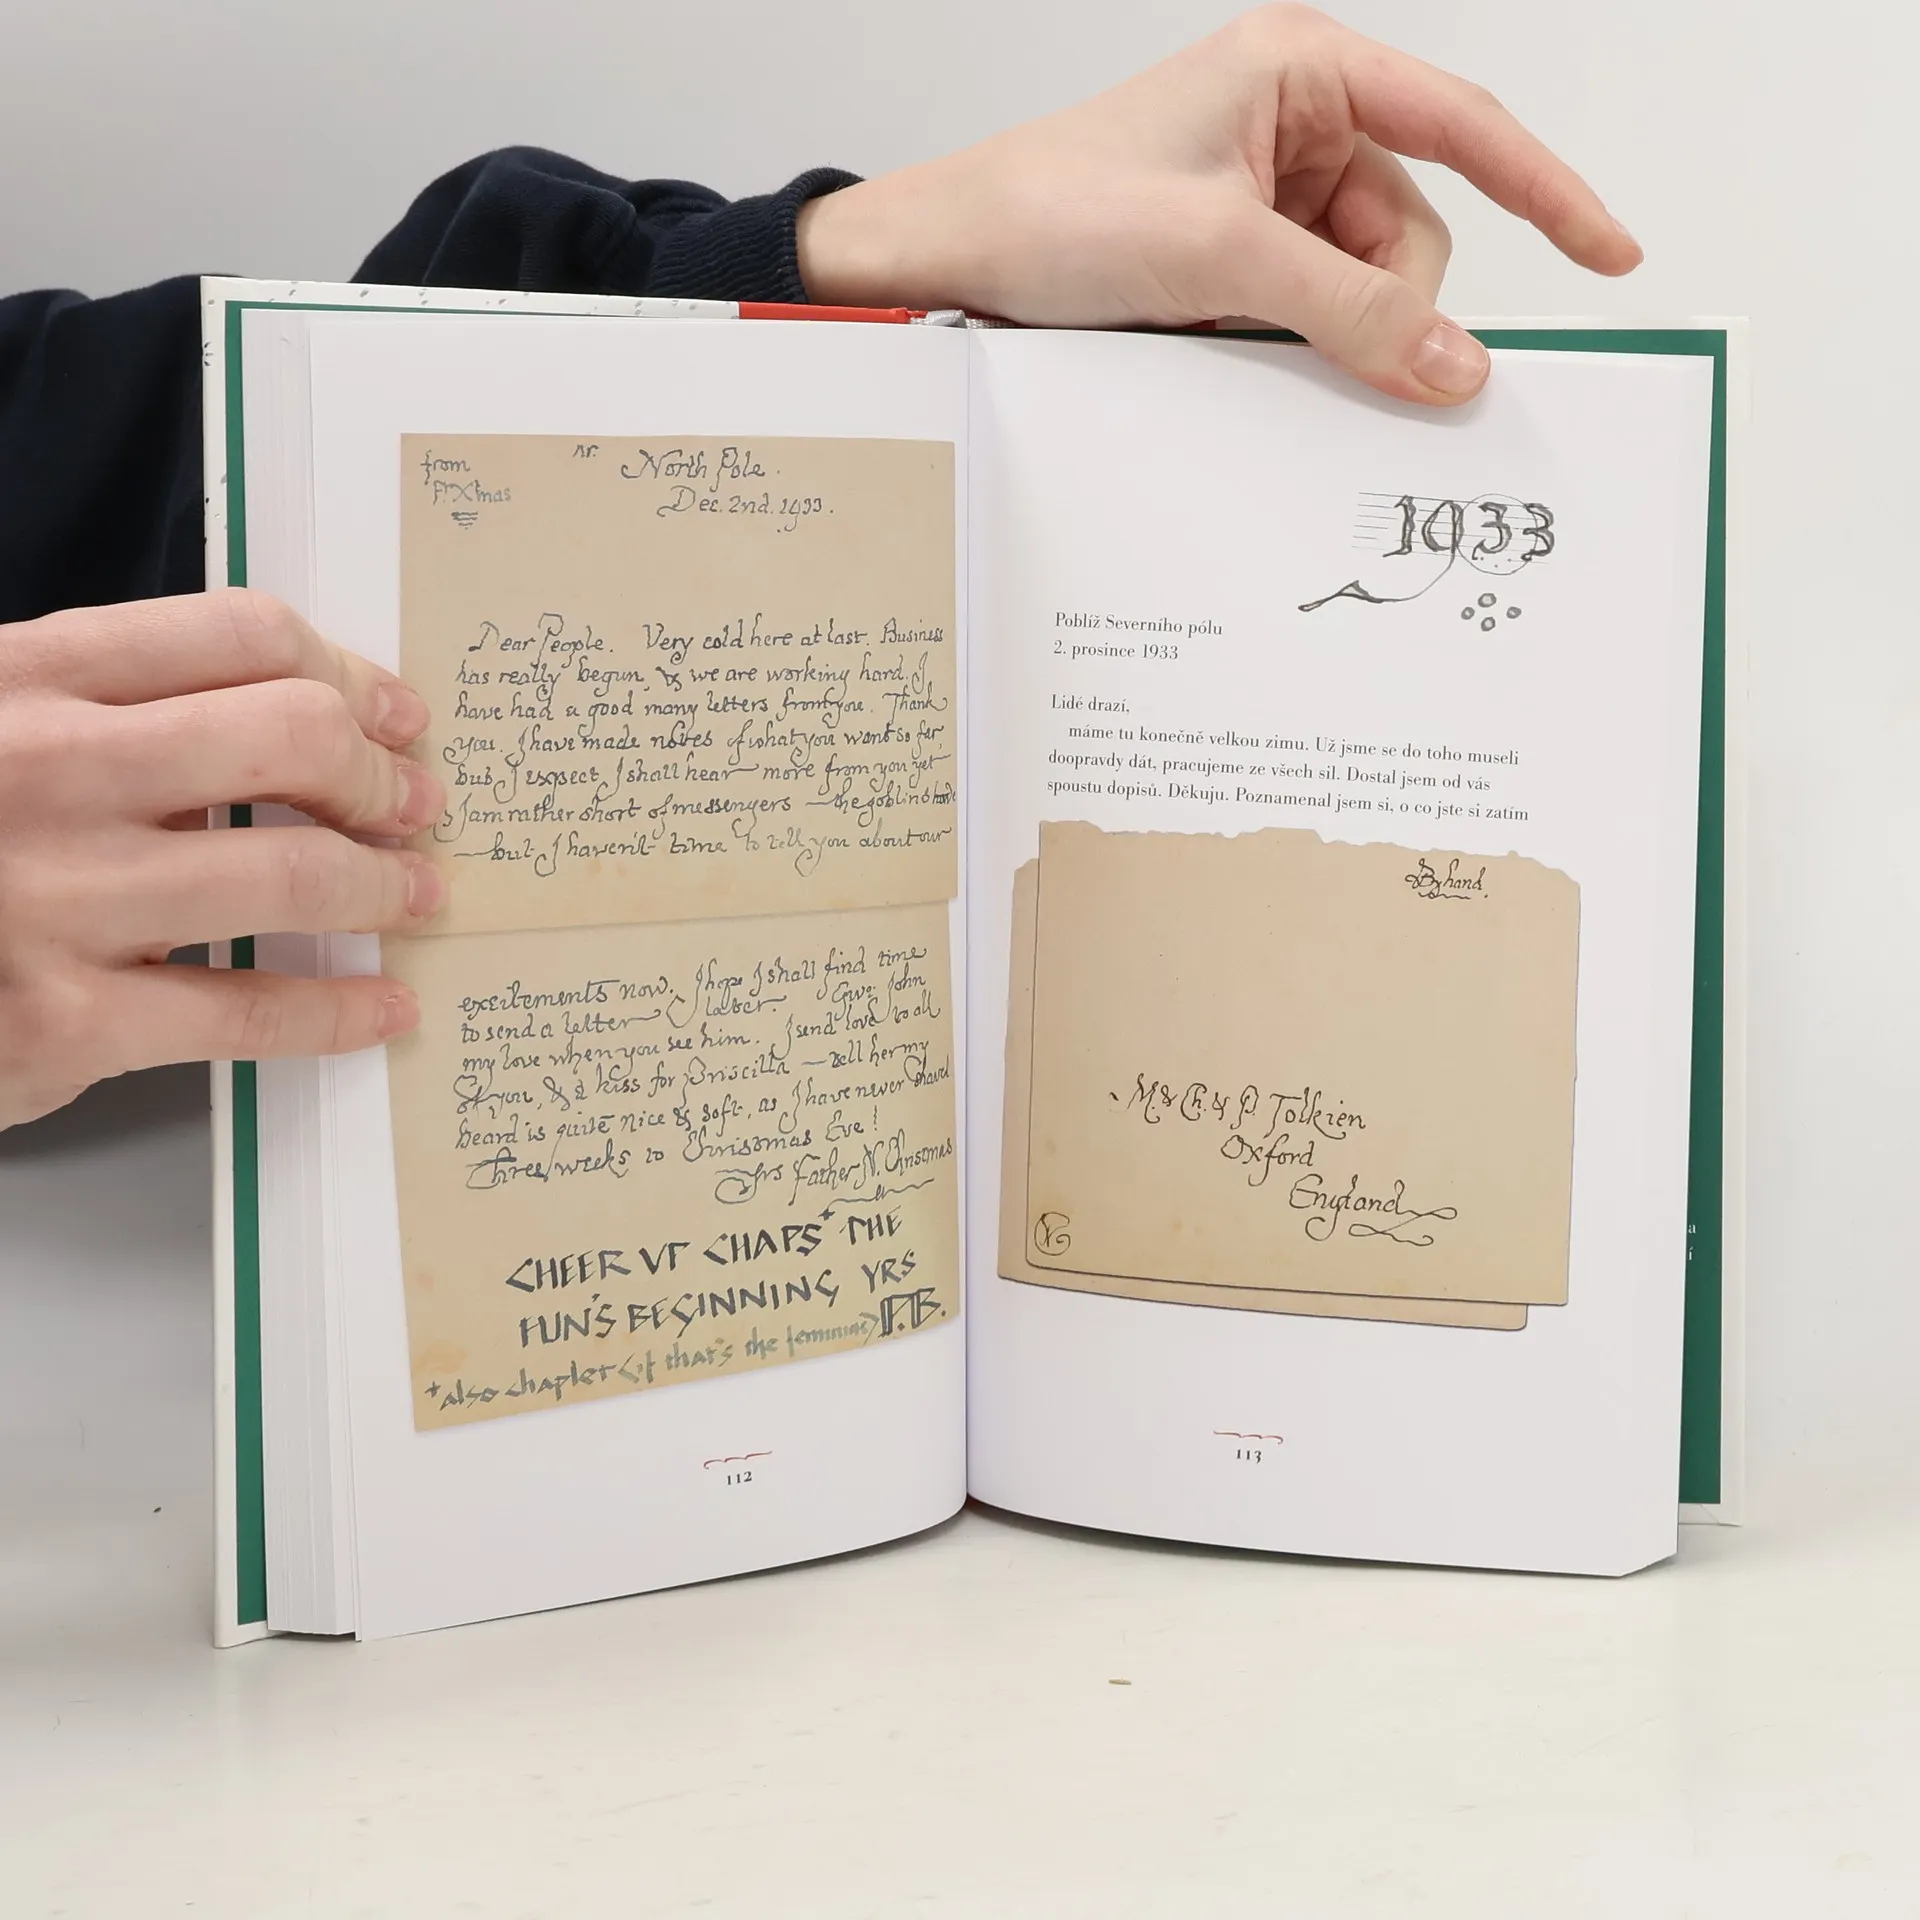 from
Fr. Xmas
nr.
North Pole.
Dec. 2nd. 1933.
Dear People. Very cold here at last. Business
has really begun, & we are working hard. I
have had a good many letters from you. Thank
you. I have made notes of what you want so far,
but I expect I shall hear more from you yet
I am rather short of messengers — the goblins have
— but I haven't time to tell you about our
excitements now. I hope I shall find time
to send a letter later. Give John
my love when you see him. I send love to all
of you, & a kiss for Priscilla — tell her my
beard is quite nice & soft, as I have never shaved
Three weeks to Christmas Eve!
Yrs Father N. Christmas
CHEER VP CHAPS* THE
FUN'S BEGINNING YRS
P.B.
*also chaplet (if that's the feminine)
112
1933
Poblíž Severního pólu
2. prosince 1933
Lidé drazí,
máme tu konečně velkou zimu. Už jsme se do toho museli
doopravdy dát, pracujeme ze všech sil. Dostal jsem od vás
spoustu dopisů. Děkuju. Poznamenal jsem si, o co jste si zatím
By hand.
M. & Ch. & P. Tolkien
Oxford
England
113
a
í